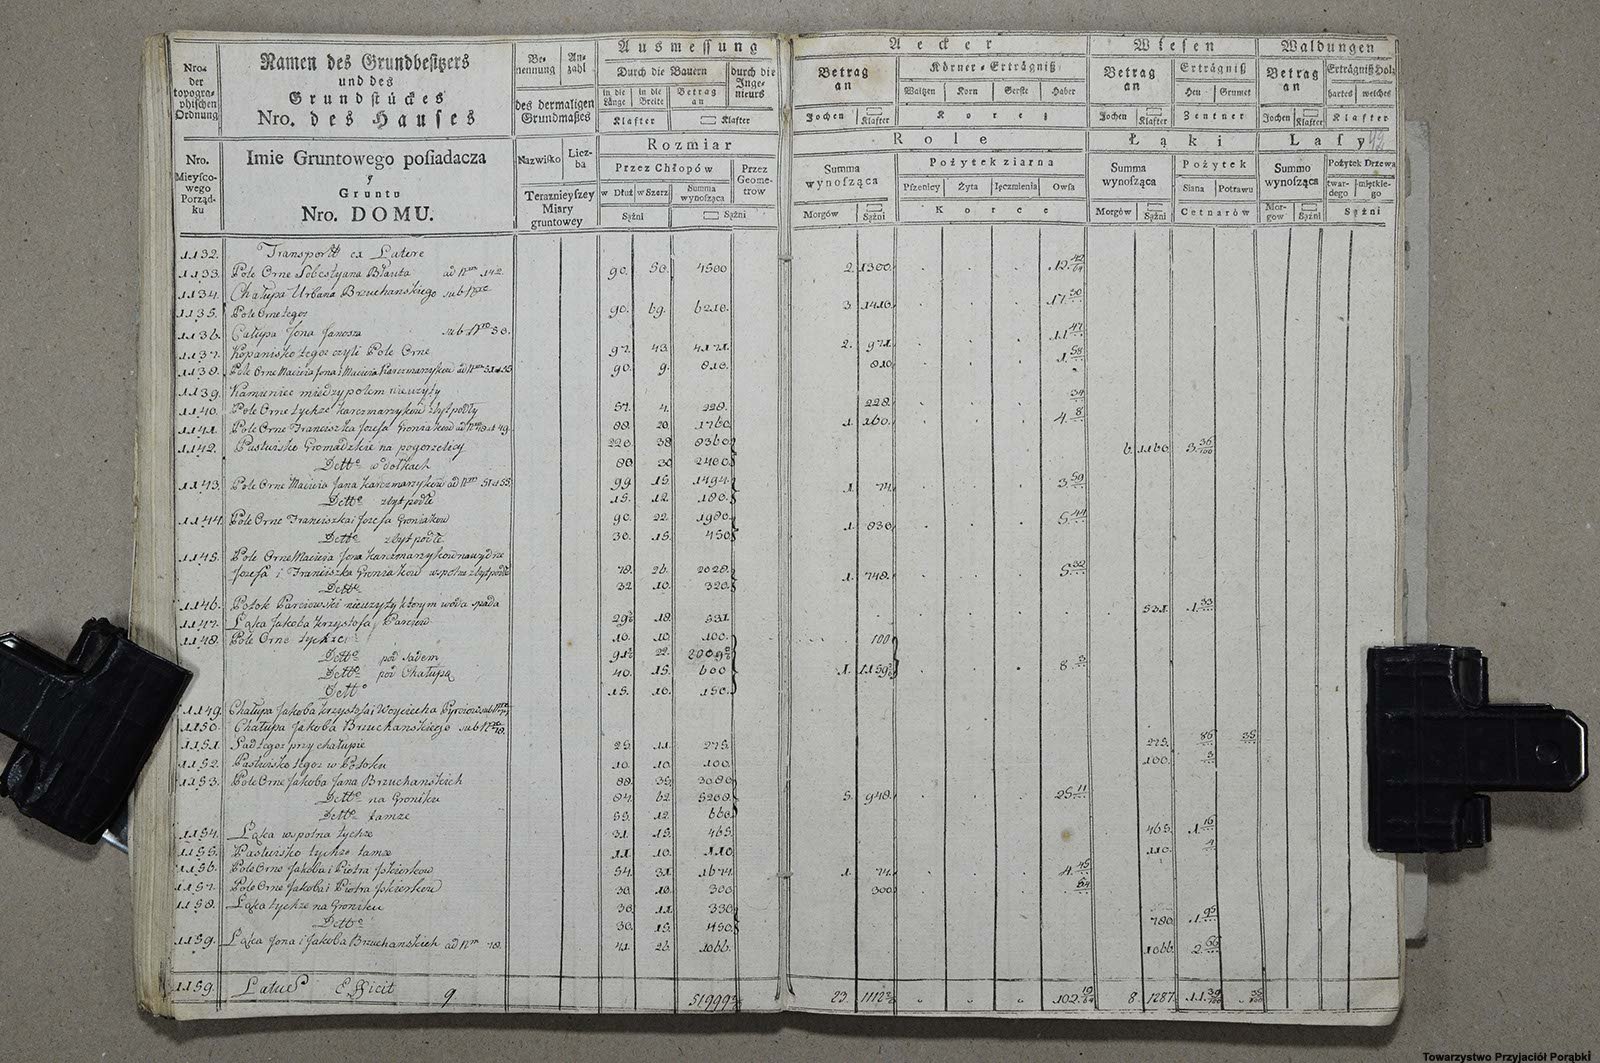 Nro. der topogra-phischen Ordnung
Namen des Grundbesitzers
und des
Grundstückes
Nro. des Hauses
Be-nennung An-zahl
des dermaligen Grundmaßes
Ausmessung
Durch die Bauern
durch die Inge-nieurs
in die Länge in die Breite Betrag an
Klafter Klafter
Aecker
Betrag an
Körner-Erträgniß
Waitzen Korn Gerste Haber
Jochen Klafter Korez
Wiesen
Betrag an Erträgniß
Heu Grumet
Jochen Klafter Zentner
Waldungen
Betrag an Erträgniß Holz
hartes weiches
Jochen Klafter Klafter
Nro. Mieysco-wego Porząd-ku
Imie Gruntowego posiadacza
y
Gruntu
Nro. DOMU.
Nazwisko Licz-ba
Teraznieyszey Miary gruntowey
Rozmiar
Przez Chłopów
Przez Geome-trow
w Dłuż w Szerz Summa wynosząca
Sążni Sążni
Role
Summa wynosząca
Pożytek ziarna
Pszenicy Żyta Jęczmienia Owsa
Morgów Sążni Korce
Łąki
Summa wynosząca Pożytek
Siana Potrawu
Morgów Sążni Cetnarów
Lasy
Summo wynosząca Pożytek Drzewa
twar-dego miętkie-go
Mor-gow Sążni Sążni
1132. Transport ex Latere
1133. Pole Orne Sobestyana Błauta ad Nrum 142. 90. 50. 4500 2. 1300. 12. 42/64
1134. Chałupa Urbana Brzuchanskiego sub Nro
1135. Pole Orne tegoz 90. 69. 6210. 3. 1410. 17. 30
1136. Całupa Jona Janosza sub Nro 50.
1137. Kopanisko tegoz czyli Pole Orne 97. 43. 4171. 2. 971. 11. 47
1138. Pole Orne Macieia Jona i Macieia Karczmarzykow 90. 9. 810. 810. 1. 58
1139. Kamieniec miedzy polem nieuzyty
1140. Pole Orne tychze karczmarzykow zbyt podły 57. 4. 228. 228. 34
1141. Pole Orne Franciszka Jozefa Groniakow 88. 20. 1760. 1. 160. 4. 8
1142. Pastwisko Gromadzkie na pogorzelicy 220. 38. 8360 6. 1160. 3. 36/100
Detto w dołkach 80. 30. 2400
1143. Pole Orne Macieia Jana karczmarzykow 99. 15. 1494. 1. 74. 3. 59
Detto zbyt podłe 15. 12. 180.
1144. Pole Orne Franciszka i Jozefa Groniakow 90. 22. 1980. 1. 830. 5. 44
Detto zbyt podłe 30. 15. 450
1145. Pole Orne Macieia Jona karczmarzykow
Jozefa i Franciszka Groniakow wspolne zbyt podłe 78. 26. 2028. 1. 748. 5. 32
Detto 32. 10. 320.
1146. Potok Parciowski nieuzyty ktorym woda spada
1147. Łąka Jakoba krzysztofa Parciow 29½ 18. 531. 531. 1. 33
1148. Pole Orne tychze 10. 10. 100. 100
Detto pod sadem 91½ 22. 1. 1159 8. 3
Detto pod Chałupą 40. 15. 600
Detto 15. 10. 150.
1149. Chałupa Jakoba krzysztofa i Woyciecha
1150. Chałupa Jakoba Brzuchanskiego sub Nro 78.
1151. Sad tegoz przy chałupie 25. 11. 275. 275. 86 35
1152. Pastwisko tegoz w Potoku 10. 10. 100. 100. 3
1153. Pole Orne Jakoba Jana Brzuchanskich 88. 35. 3080
Detto na Groniku 84. 62. 5208. 5. 948. 25. 11
Detto tamze 55. 12. 660
1154. Łąka wspolna tychze 31. 15. 465. 465. 1. 16
1155. Pastwisko tychze tamze 11. 10. 110 110. 4
1156. Pole Orne Jakoba i Piotra 54. 31. 1674. 1. 74. 4. 45
1157. Pole Orne Jakoba i Piotra 30. 10. 300 300. 64
1158. Łąka tychze na Groniku 30. 11. 330
Detto 30. 15. 450. 780. 1. 95
1159. Łąka Jona i Jakoba Brzuchanskich ad Nrm 78. 41. 26. 1066. 1066. 2. 66
1159. Latus Efficit 9 51999 23. 1112 102. 19/64 8. 1287. 11. 39/100 35/100
Towarzystwo Przyjaciół Porąbki